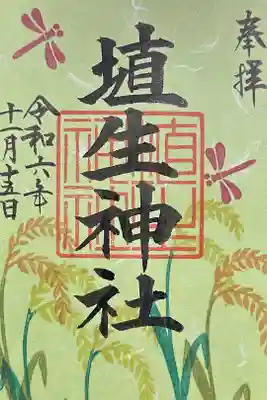 奉拝
埴生神社
令和六年
十一月十五日